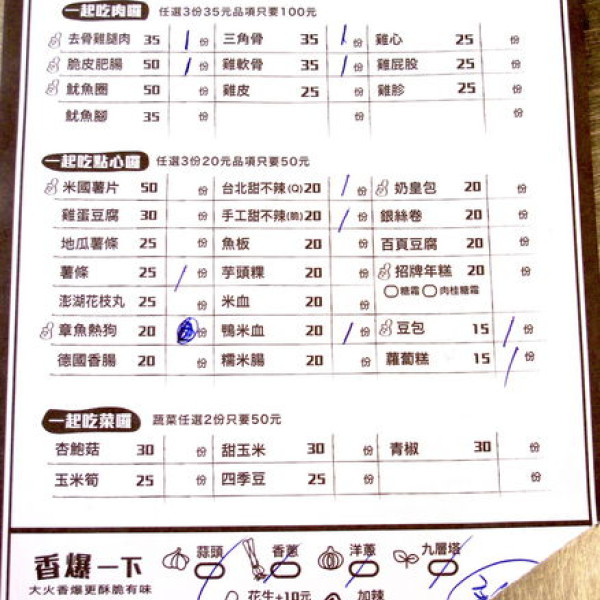 一起吃肉囉 任選3份35元品項只要100元
去骨雞腿肉 35 份 三角骨 35 份 雞心 25 份
脆皮肥腸 50 份 雞軟骨 35 份 雞屁股 25 份
魷魚圈 50 份 雞皮 25 份 雞胗 25 份
魷魚腳 35 份 份 份
一起吃點心囉 任選3份20元品項只要50元
米國薯片 50 份 台北甜不辣(Q) 20 份 奶皇包 20 份
雞蛋豆腐 30 份 手工甜不辣(脆) 20 份 銀絲卷 20 份
地瓜薯條 25 份 魚板 20 份 百頁豆腐 20 份
薯條 25 份 芋頭粿 20 份 招牌年糕 20 份
糖霜 肉桂糖霜
澎湖花枝丸 25 份 米血 20 份
章魚熱狗 20 份 鴨米血 20 份 豆包 15 份
德國香腸 20 份 糯米腸 20 份 蘿蔔糕 15 份
一起吃菜囉 蔬菜任選2份只要50元
杏鮑菇 30 份 甜玉米 30 份 青椒 30 份
玉米筍 25 份 四季豆 25 份 份
香爆一下 蒜頭 香蔥 洋蔥 九層塔
大火香爆更酥脆有味 花生+10元 加辣